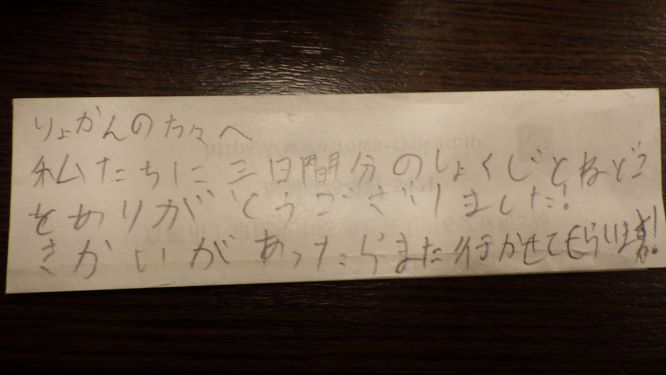 りょかんの方々へ
私たちに三日間分のしょくじとねどこ
をありがとうございました！
きかいがあったらまた行かせてもらいます！